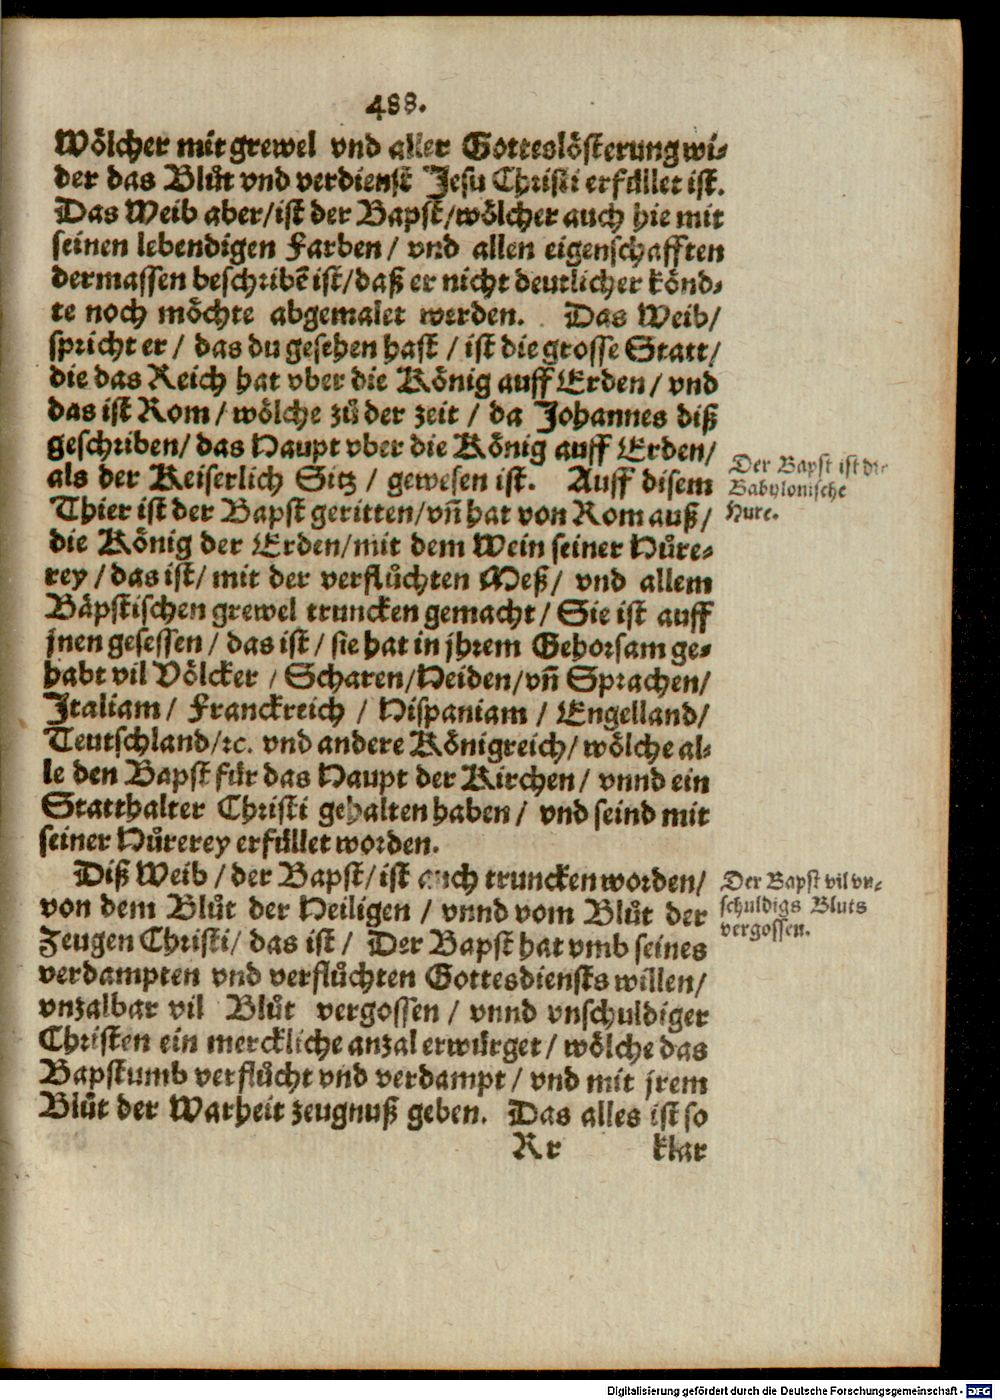 488.
Wölcher mit grewel vnd aller Gotteslösterung wi-
der das Blůt vnd verdienst Jesu Christi erfüllet ist.
Das Weib aber/ist der Bapst/wölcher auch hie mit
seinen lebendigen Farben/ vnd allen eigenschafften
dermassen beschribē ist/daß er nicht deutlicher könd-
te noch möchte abgemalet werden. Das Weib/
spricht er/ das du gesehen hast/ ist die grosse Statt/
die das Reich hat vber die König auff Erden/ vnd
das ist Rom/ wölche zů der zeit/ da Johannes diß
geschriben/ das Haupt vber die König auff Erden/
als der Keiserlich Sitz/ gewesen ist. Auff disem
Der Bapst ist die
Babylonische
Hure.
Thier ist der Bapst geritten/vñ hat von Rom auß/
die König der Erden/mit dem Wein seiner Hůre-
rey/das ist/ mit der verflůchten Meß/ vnd allem
Bäpstischen grewel truncken gemacht/ Sie ist auff
jnen gesessen/ das ist/ sie hat in jhrem Gehorsam ge-
habt vil Völcker/ Scharen/Heiden/vñ Sprachen/
Italiam/ Franckreich/ Hispaniam/ Engelland/
Teutschland/ꝛc. vnd andere Königreich/ wölche al-
le den Bapst für das Haupt der Kirchen/ vnnd ein
Statthalter Christi gehalten haben/ vnd seind mit
seiner Hůrerey erfüllet worden.
Diß Weib/ der Bapst/ist auch truncken worden/
von dem Blůt der Heiligen/ vnnd vom Blůt der
Zeugen Christi/ das ist/ Der Bapst hat vmb seines
Der Bapst vil vn-
schuldigs Bluts
vergossen.
verdampten vnd verflůchten Gottesdiensts willen/
vnzalbar vil Blůt vergossen/ vnnd vnschuldiger
Christen ein merckliche anzal erwürget/ wölche das
Bapstumb verflůcht vnd verdampt/ vnd mit jrem
Blůt der Warheit zeugnuß geben. Das alles ist so
Rr klar
Digitalisierung gefördert durch die Deutsche Forschungsgemeinschaft - DFG